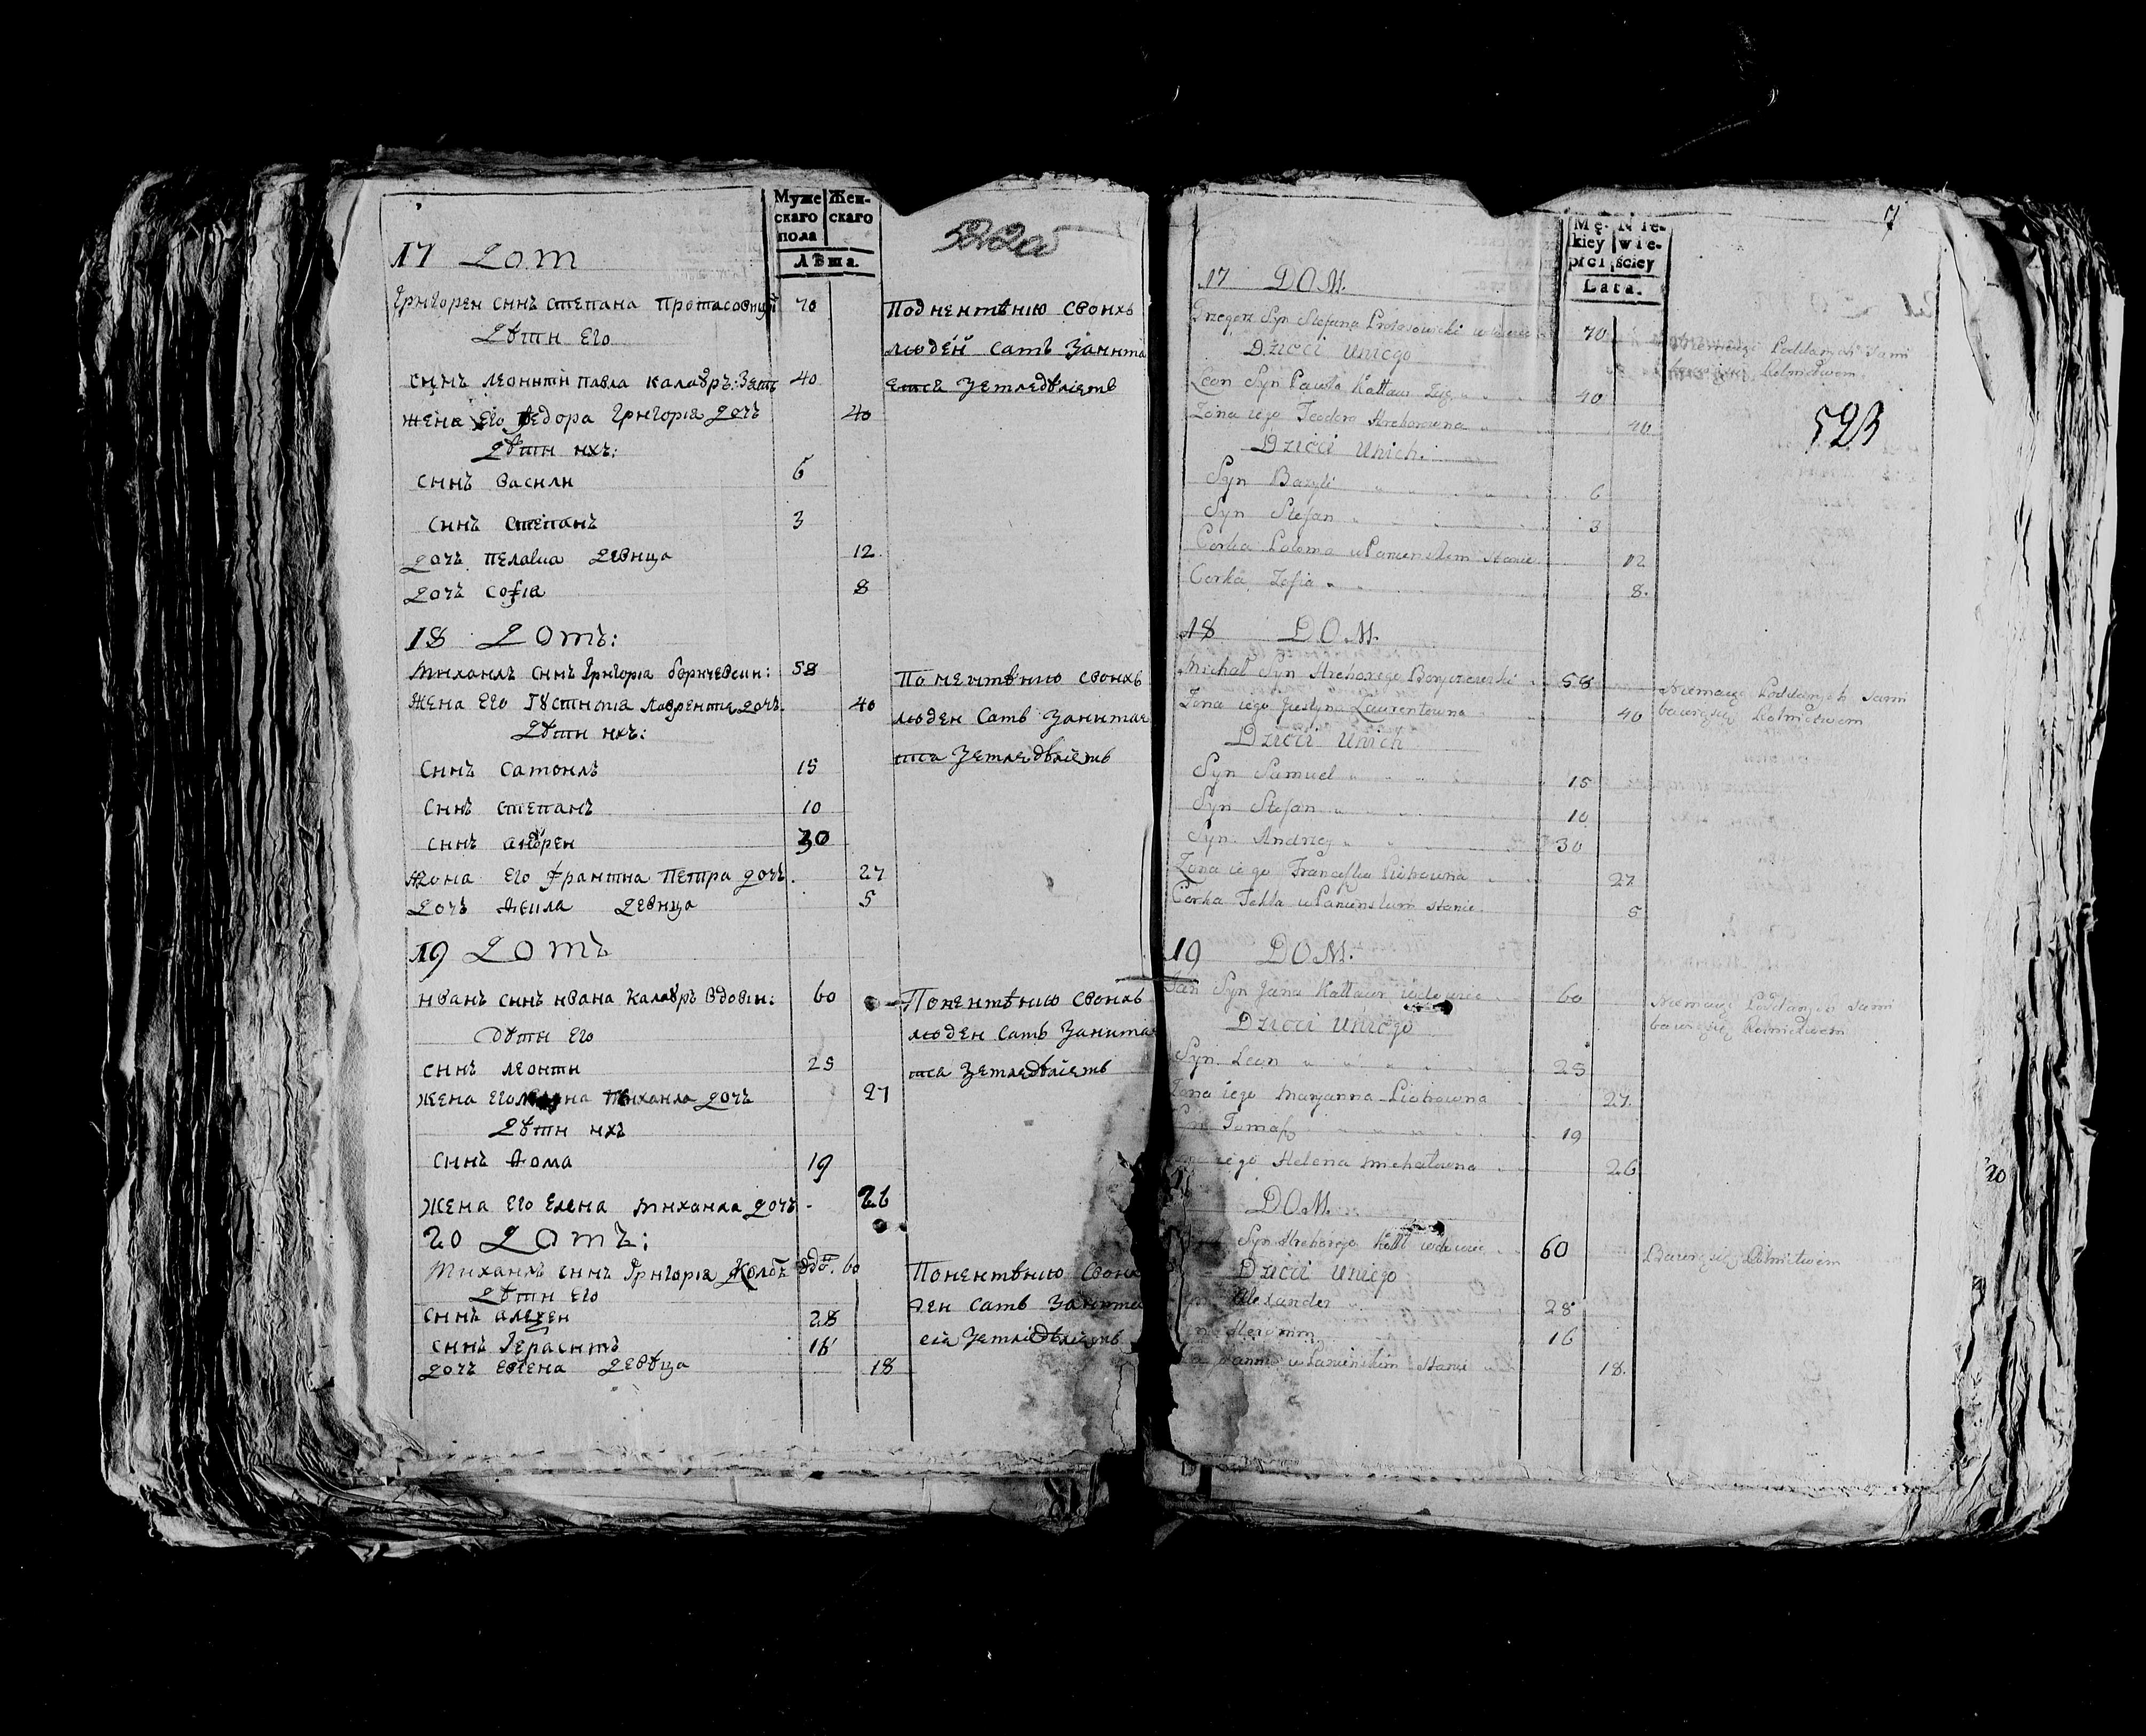 Муже
скаго
пола
Жен-
скаго
Лѣта.
522об
17 Дом
Григореи синъ степана Протасовицкй 70
Дѣти Его
синъ леонти павла калаѵръ: Зять 40
жена Его Ѳедора Григорія дочъ 40
Дѣти ихъ:
синъ Васили 6
синъ степанъ 3
дочъ пелагиа Девица 12
дочъ софія 8
По неимѣнию своихъ
людей самъ Занима
ется Земледѣліемъ
18 Домъ:
Михаилъ синъ Григорія боричевски: 58
Жена Его Іустиния Лаврентия дочъ. 40
Дѣти ихъ:
синъ самоилъ 15
синъ степанъ 10
синъ андреи 30
Жона Его Франтина Петра дочъ. 27
Дочъ Ѳекла Девица 5
По неимѣнию своихъ
людеи самъ Занимае
тса Земледѣліемъ
19 Домъ
иванъ синъ ивана калаѵръ вдовін: 60
Дѣти Его
синъ леонти 25
жена Его Михаила дочъ 27
Дѣти ихъ
синъ Ѳома 19
жена Его Елена Михаила дочъ - 26
По неимѣнию своихъ
людеи самъ Занимае
тса Земледѣліемъ
20 Домъ:
Михаилъ синъ Григорія Колбъ вдо. 60
Дѣти Его
синъ алеѯеи 28
синъ Герасимъ 16
дочъ Евгена Девѣца 18
По неимѣнию свои
деи самъ Занима
еся Земледѣліемъ
7
Mę-
kiey
płci
Nie-
wie-
ściey
Lata.
523
17 DOM.
Grzegorz Syn Stefana Protasowicki wdowiec 70
Dzieci Uniego
Leon Syn Pawła Kattaur Zięć 40
Żona iego Teodora Hrehorowna 40
Dzieci Unich.
Syn Bazyli 6
Syn Stefan 3
Corka Paloma w Panienskim stanie 12
Corka Zofia 8.
Niemaiąc Poddanych Sami
bawią się Rolnictwem
18 DOM.
Michał Syn Hrehorego Boryczewski 58
Żona iego Justyna Laurentowna 40
Dzieci Unich
Syn Samuel 15
Syn Stefan 10
Syn Andrzey 30
Żona iego Franciszka Piotrowna 27
Corka Tekla w Panienskim stanie 5
Niemaiąc Poddanych Sami
bawią się Rolnictwem
19 DOM.
Jan Syn Jana Kattaur wdowiec 60
Dzieci Uniego
Syn Leon 25
Żona iego Maryanna Piotrowna 27.
Syn Tomasz 19
Żona iego Helena Michałowna 26
Niemaiąc Poddanych Sami
bawią się Rolnictwem
20
DOM.
Syn Hrehorego Kołb wdowiec 60
Dzieci Uniego
Syn Alexander 28
Syn Heronim 16
w Panienskim stanie 18.
Bawią się Rolnictwem